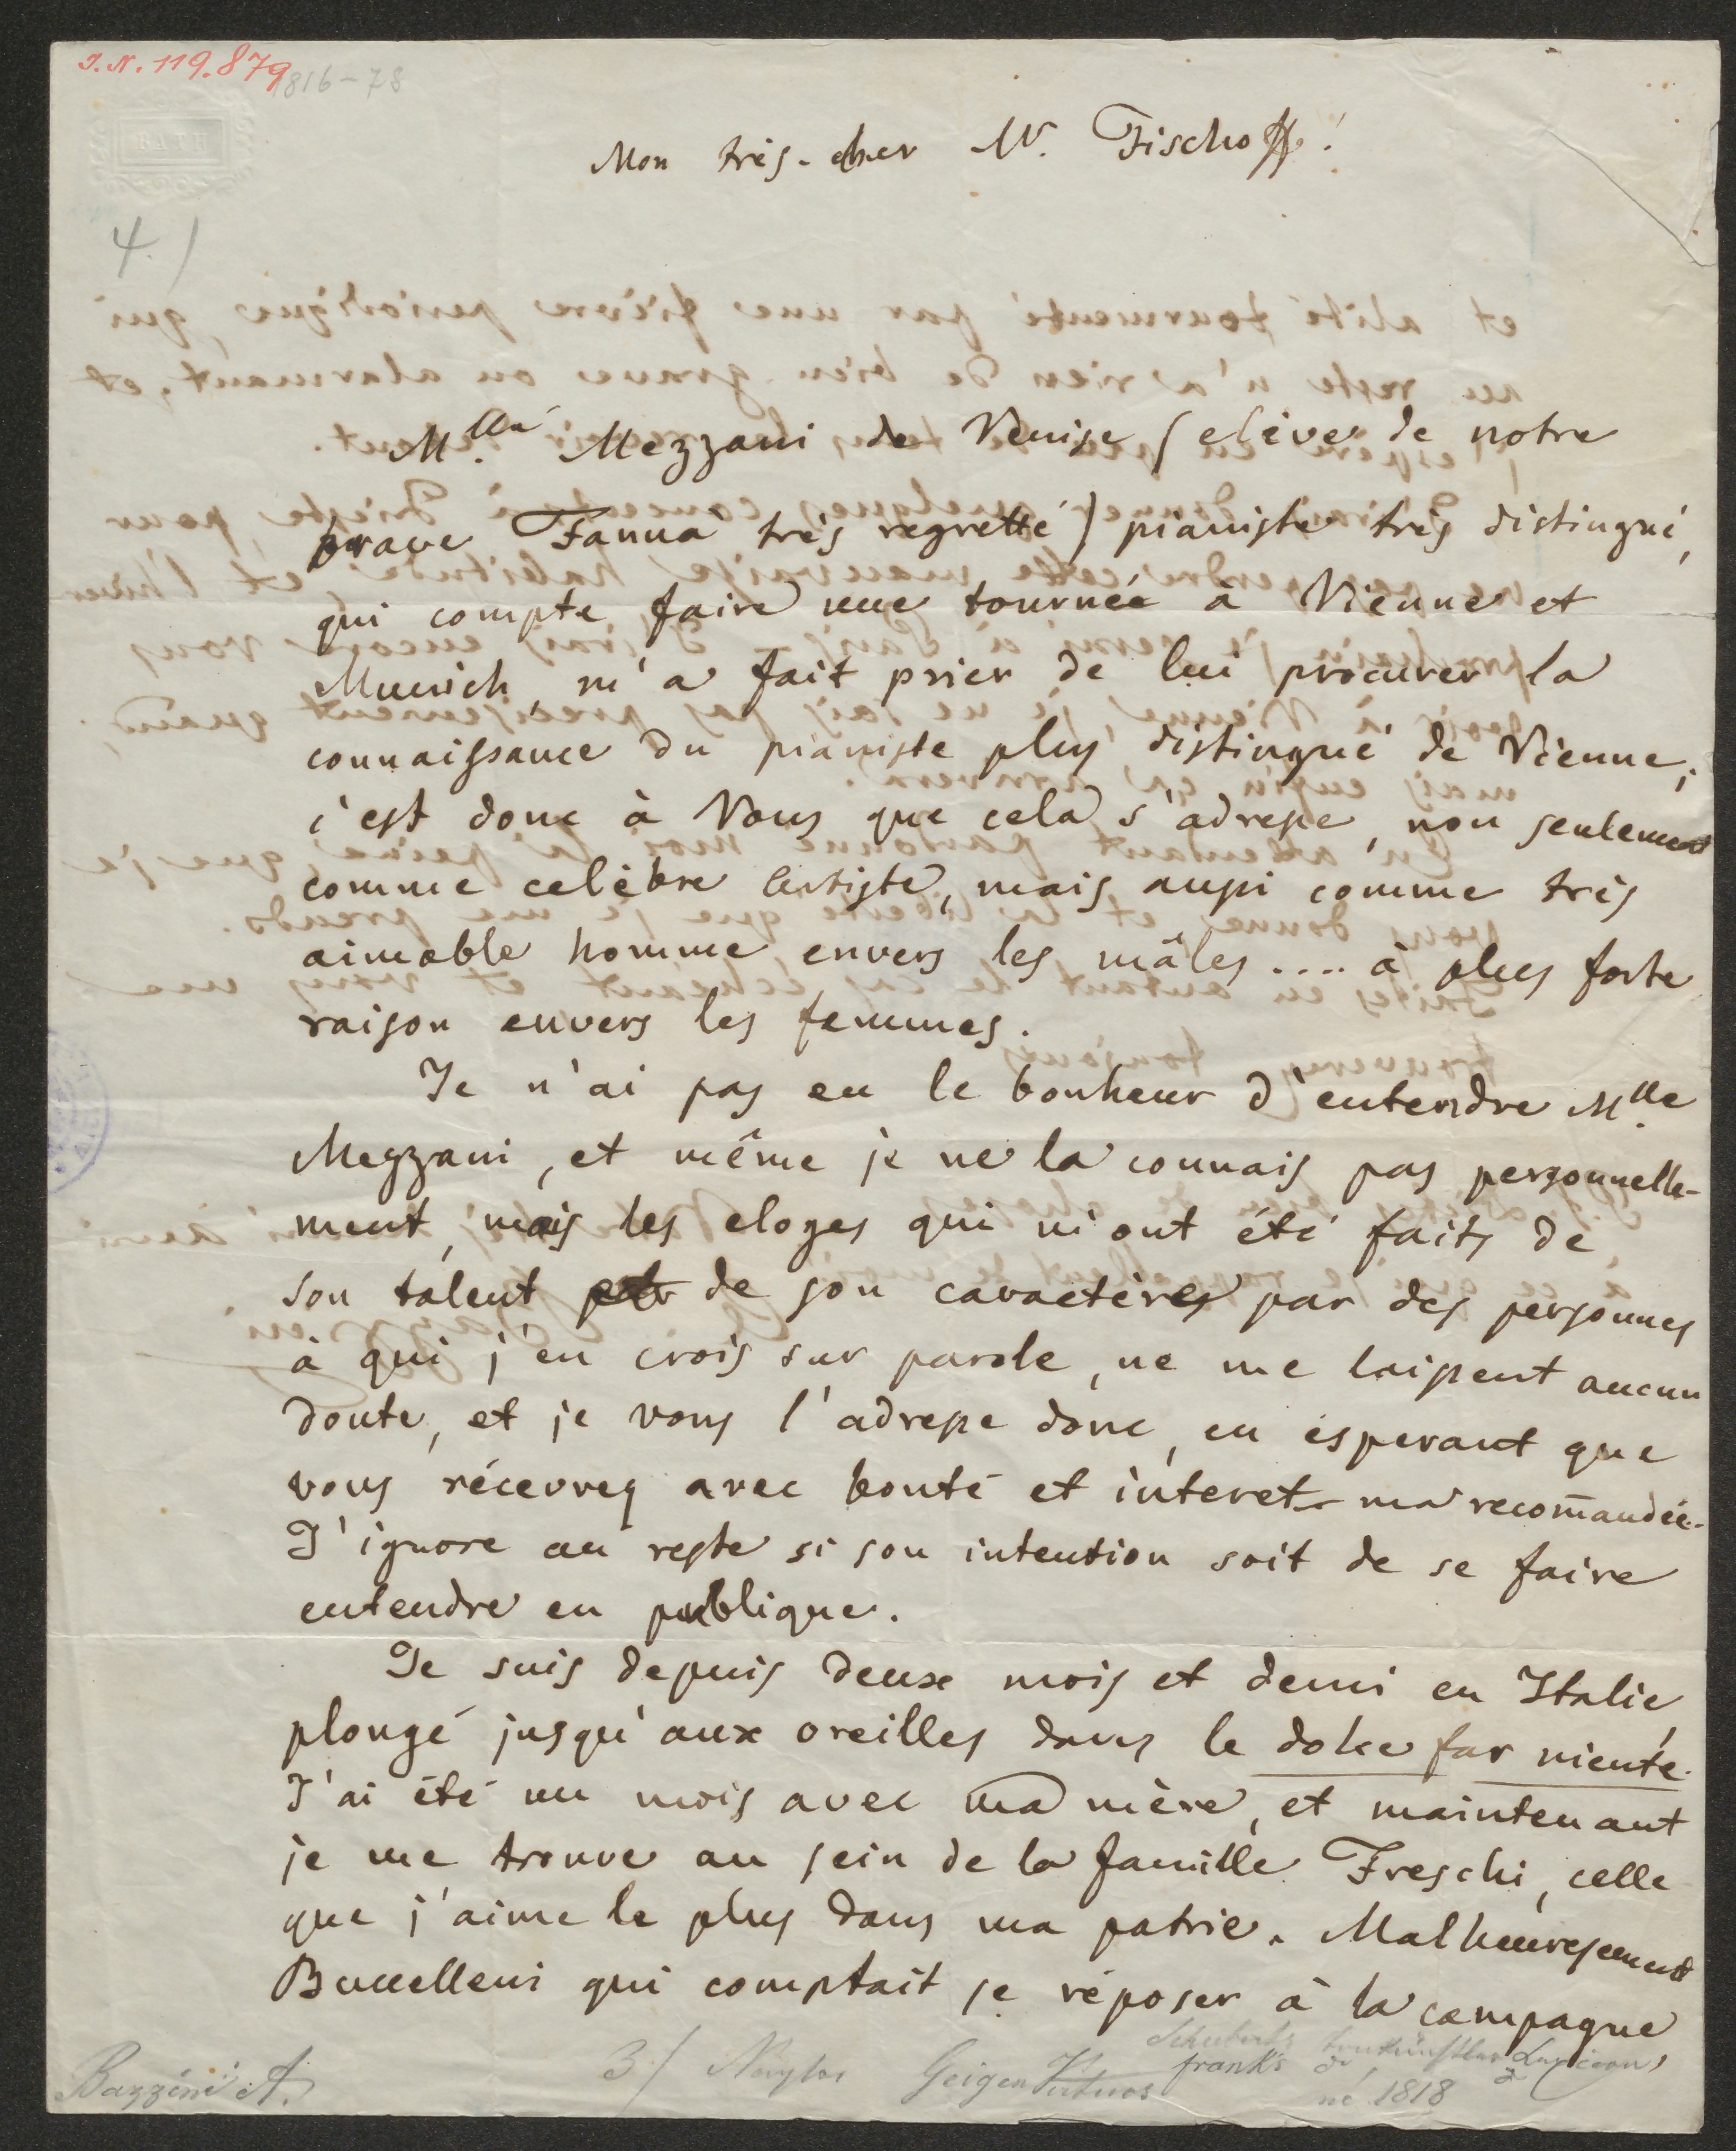 J.N. 119.879
1816-78
BATH
4.)
Mon très-cher Mr. Fischoff!
Mlle Mezzani de Venise (elève de notre
brave Fanna très regretté) pianiste très distingué,
qui compte faire une tournée à Vienne et
Munich, m'a fait prier de lui procurer la
connaissance du pianiste plus distingué de Vienne;
c'est donc à Vous que cela s'adresse, non seulement
comme celèbre Artiste, mais aussi comme très
aimable homme envers les mâles .... à plus forte
raison envers les femmes.
Je n'ai pas eu le bonheur d'entendre Mlle
Mezzani, et même je ne la connais pas personnelle-
ment, mais les eloges qui m'ont été faits de
son talent de son caractère par des personnes
à qui j'en crois sur parole, ne me laissent aucun
doute, et je vous l'adresse donc, en ésperant que
vous récevrez avec bonté et interet ma recom̄andée.
J'ignore au reste si son intention soit de se faire
entendre en publique.
Je suis depuis deux mois et demi en Italie,
plongé jusqu'aux oreilles dans le dolce far niente.
J'ai été un mois avec ma mère, et maintenant
je me trouve au sein de la famille Freschi, celle
que j'aime le plus dans ma patrie. Malheuresement
Buccelleni qui comptait se réposer à la campagne
Bazzini A.
3/
Geigen Virtuos
franks
Tonkünstler Lexicon
né 1818